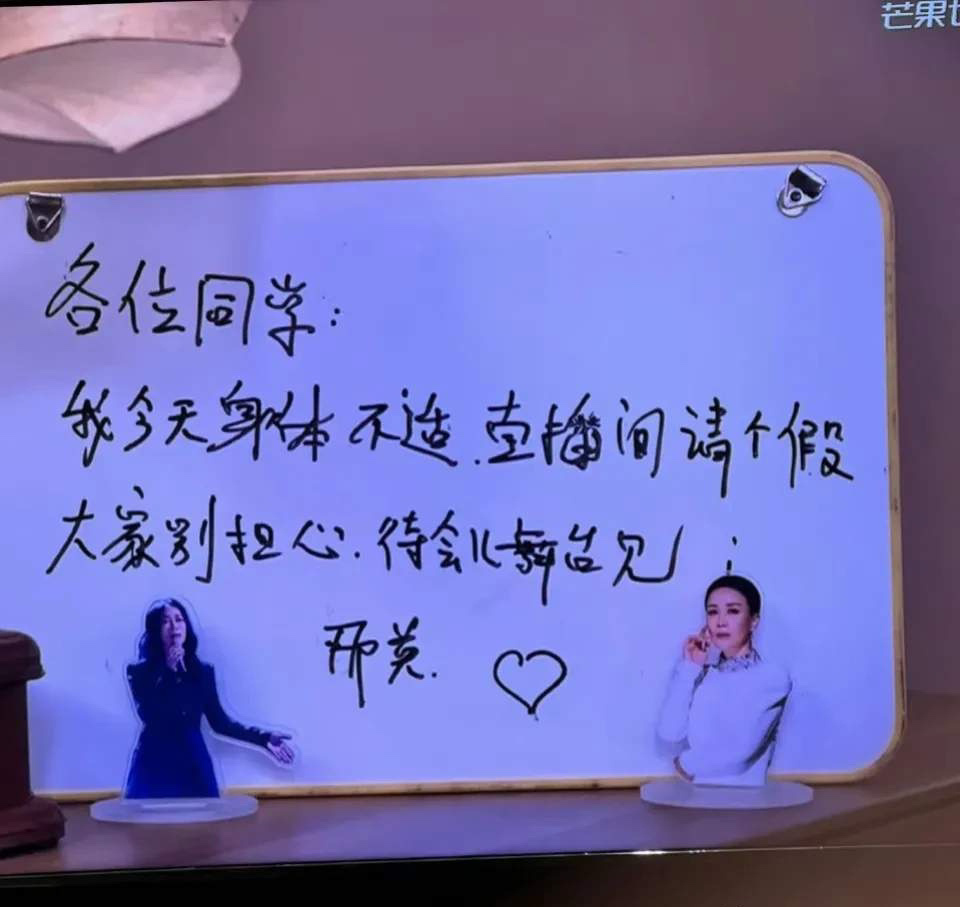 芒果
各位同学：
我今天身体不适.直播间请个假
大家别担心.待会儿舞台见！
那英.